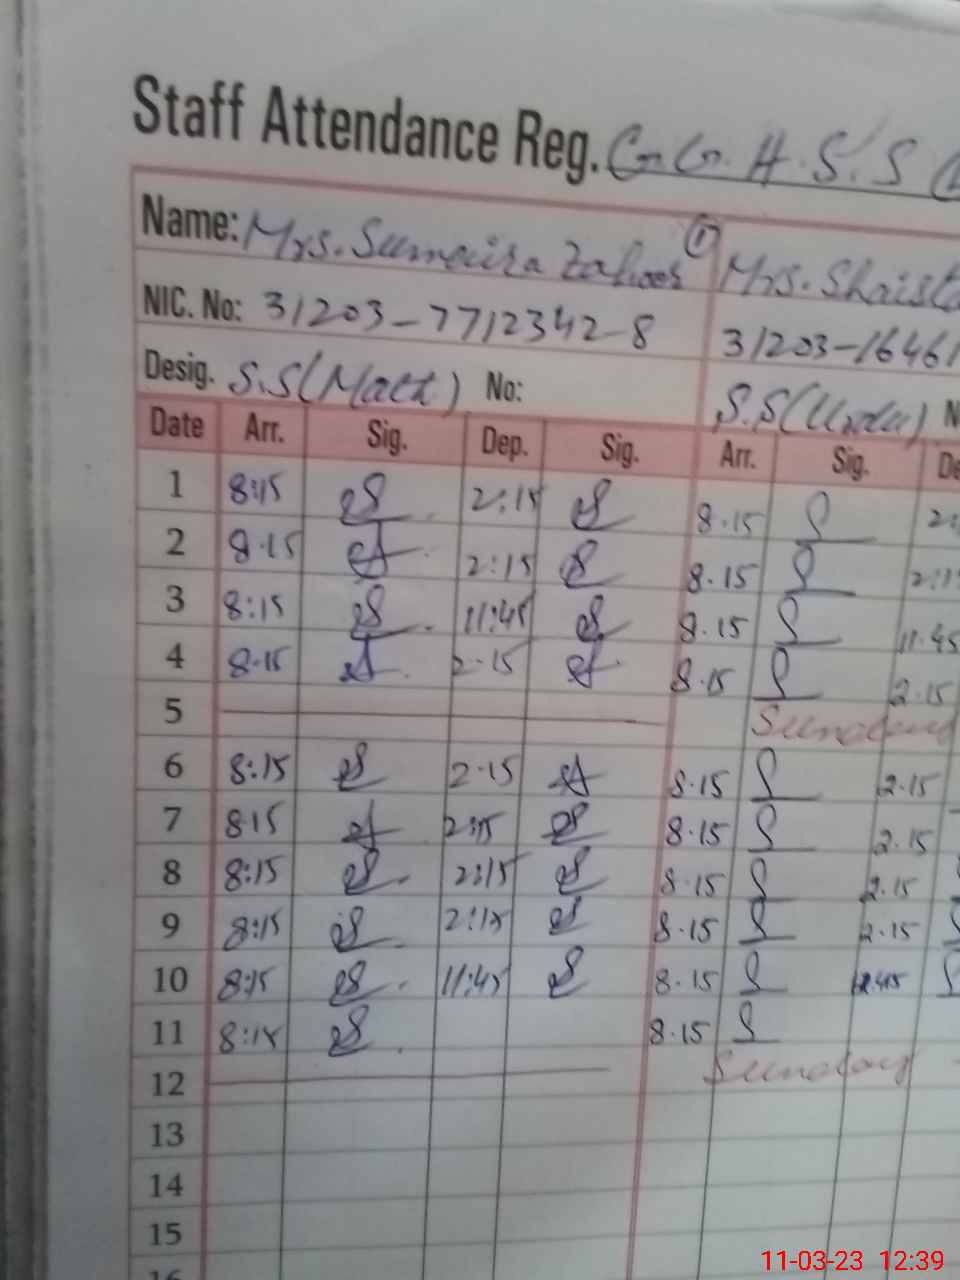 Staff Attendance Reg. G.G.H.S.S
Name: Mrs. Sumaira Zahoor 1 Mrs.
NIC. No: 31203-7712342-8 31203-16461
Desig. S.S(Math) No: S.S(Urdu) N
Date Arr. Sig. Dep. Sig. Arr. Sig. De
1 8:15 2:15 8.15 2:
2 8.15 2:15 8.15 2:1
3 8:15 11:45 8.15 11.45
4 8.15 2.15 8.15 2.15
5 Sunday
6 8:15 2.15 8.15 2.15
7 8.15 2:15 8.15 2.15
8 8:15 2:15 8.15 2.15
9 8:15 2:15 8.15 2.15
10 8:15 11:45 8.15
11 8:15 8.15
12 Sunday
13
14
15
16
11-03-23 12:39